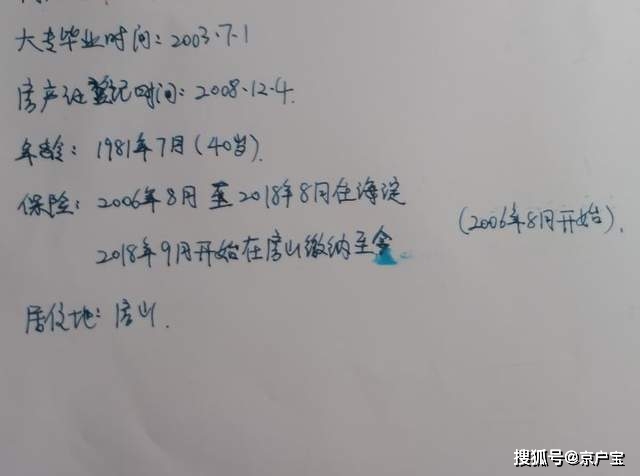 大专毕业时间:2003.7.1
房产证登记时间:2008.12.4.
年龄:1981年7月(40岁).
保险:2006年8月至2018年8月在海淀
(2006年8月开始).
2018年9月开始在房山缴纳至今
居住地:房山.
搜狐号@京户宝